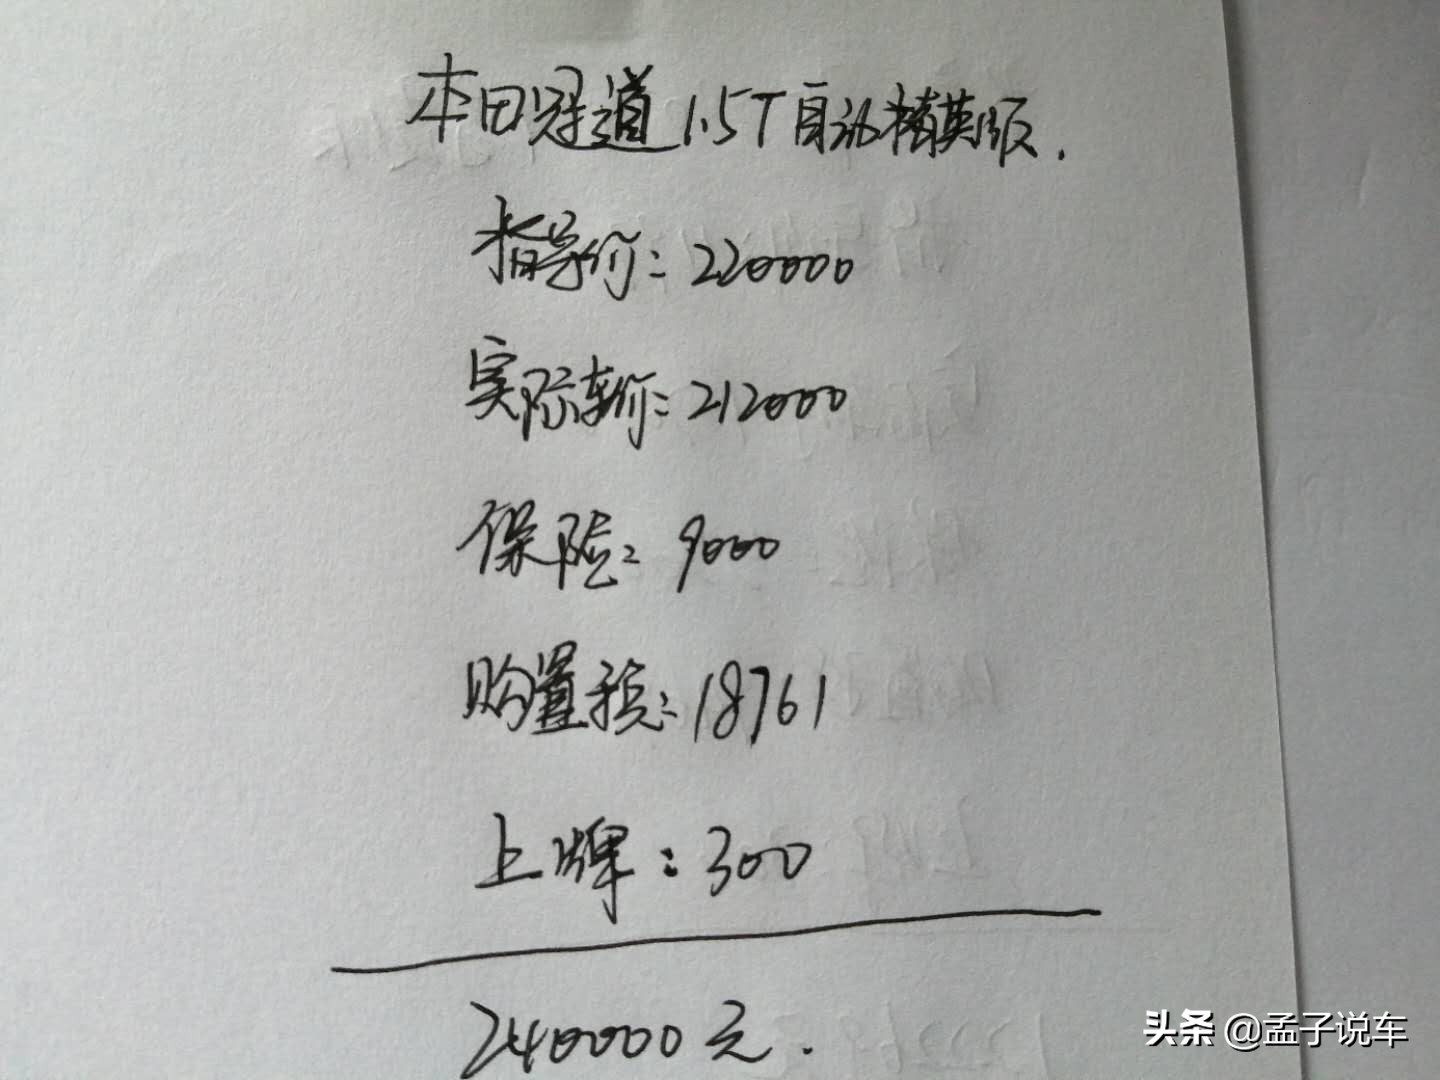 本田冠道1.5T自动精英版.
指导价:220000
实际车价:212000
保险:9000
购置税:18761
上牌:300
240000元.
头条 @孟子说车